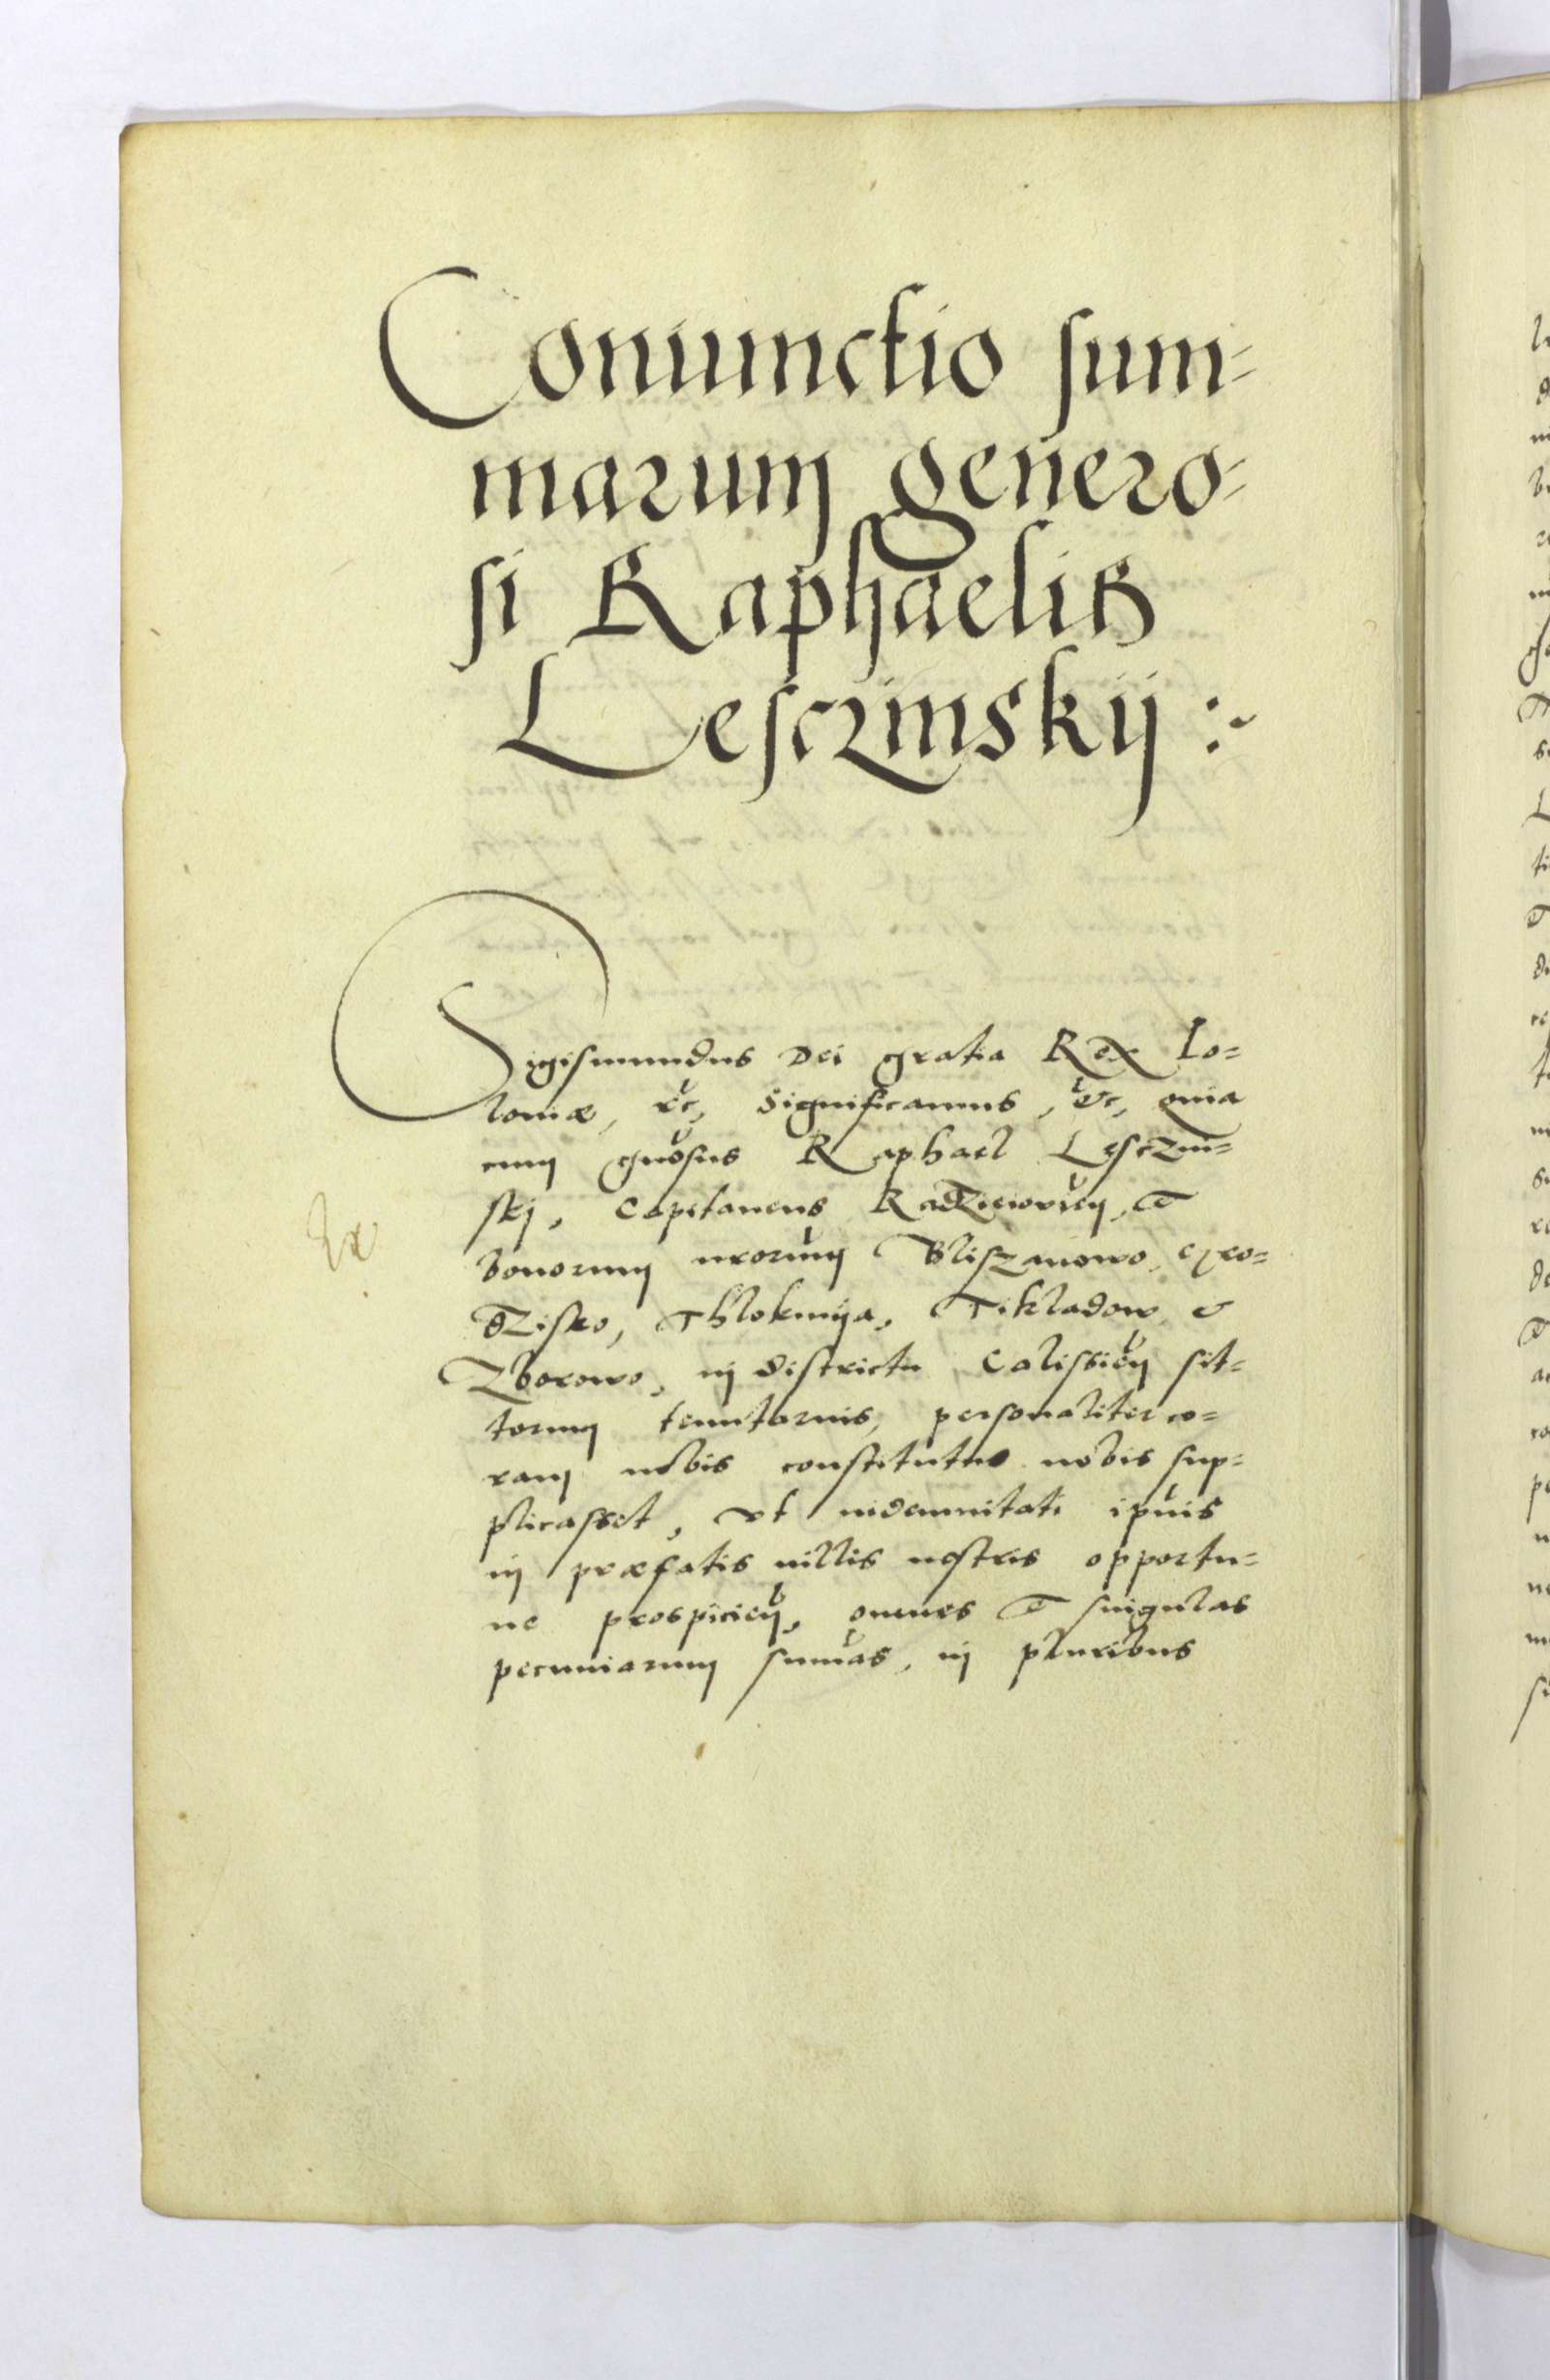 Coniunctio sum-
marum genero-
si Raphaelis
Lesczinskij :~
Sigismundus Dei gratia Rex Po=
loniæ, etc, Significamus, etc, quia
cum gnosus Raphael Lesczin=
skj, Capitaneus Radzieiovien, et
Ex
bonorum nrorum Bliszanowo,
dzisko, Thlokinija, Tikladow, et
Zborowo, in districtu Calissien sit=
torum tenutarius, personaliter co=
ram nobis constitutus nobis sup=
plicasset, ut indemnitati ipius
in præfatis villis nostris opportu=
ne prospicien, omnes et singulas
pecuniarum sumas, in pluribus